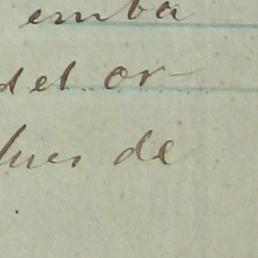 emba
del or-
lues de